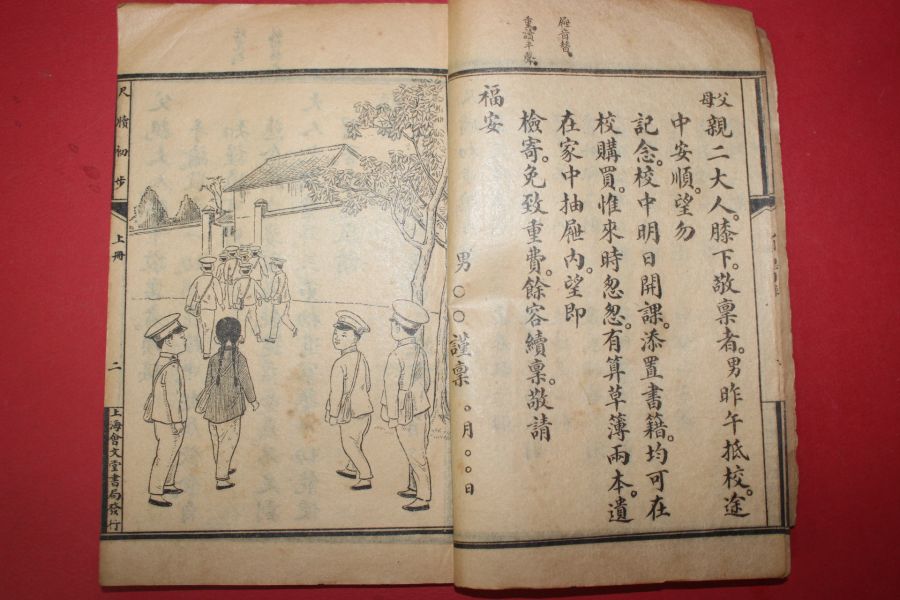 屜音替。
重讀平聲。
父母親二大人。膝下。敬稟者。男昨午抵校。途
中安順。望勿
記念。校中明日開課。添置書籍。均可在
校購買。惟來時忽忽。有算草簿兩本。遺
在家中抽屜內。望即
檢寄。免致重費。餘容續稟。敬請
福安
男○○謹稟 ○月○○日
尺牘初步 上冊 二 上海會文堂書局發行